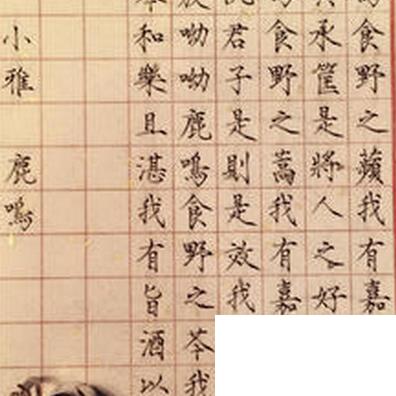 食野之蘋我有嘉
承筐是將人之好
食野之蒿我有嘉
君子是則是效我
呦呦鹿鳴食野之芩我
和樂且湛我有旨酒以
小雅 鹿鳴